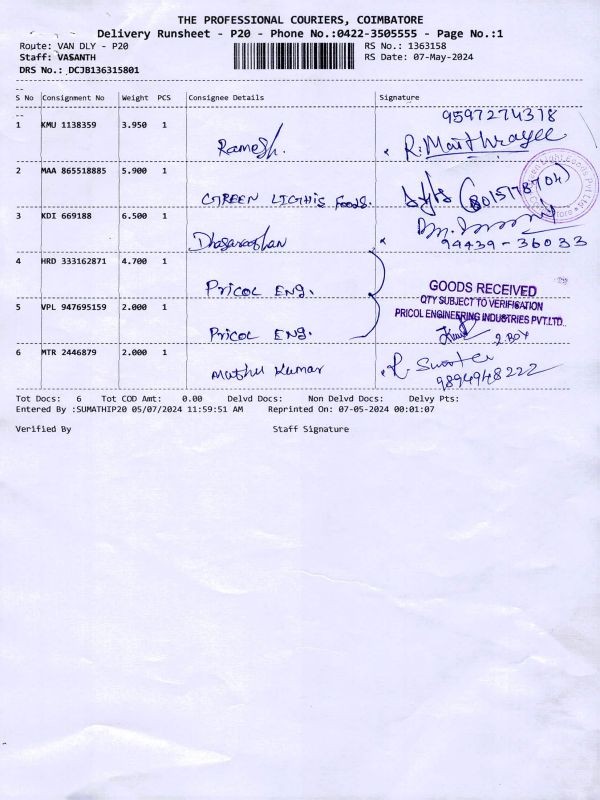 THE PROFESSIONAL COURIERS, COIMBATORE
Delivery Runsheet - P20 - Phone No.:0422-3505555 - Page No.:1
Route: VAN DLY - P20 RS No.: 1363158
Staff: VASANTH RS Date: 07-May-2024
DRS No.: DCJB136315801
S No Consignment No Weight PCS Consignee Details Signature
9597274318
1 KMU 1138359 3.950 1 Ramesh. R. Maithrayee
2 MAA 865518885 5.900 1 GREEN LIGTHIS Foods. (8015178704)
3 KDI 669188 6.500 1 Dhasarathan 94439-36033
4 HRD 333162871 4.700 1 Pricol Eng.
GOODS RECEIVED
QTY SUBJECT TO VERIFICATION
PRICOL ENGINEERING INDUSTRIES PVT.LTD.
5 VPL 947695159 2.000 1 Pricol Eng. 2.BOX
6 MTR 2446879 2.000 1 Mathu Kumar R. Swarte
9894948222
Tot Docs: 6 Tot COD Amt: 0.00 Delvd Docs: Non Delvd Docs: Delvy Pts:
Entered By :SUMATHIP20 05/07/2024 11:59:51 AM Reprinted On: 07-05-2024 00:01:07
Verified By Staff Signature